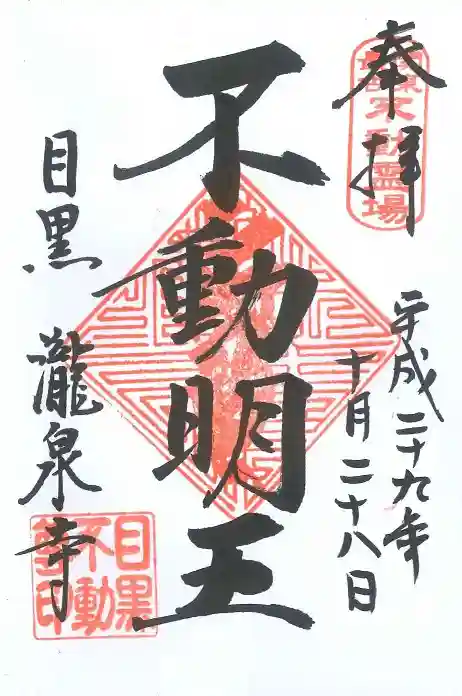 奉拝
関東最古不動霊場
平成二十九年
十月二十八日
不動明王
目黒 瀧泉寺
目黒不動